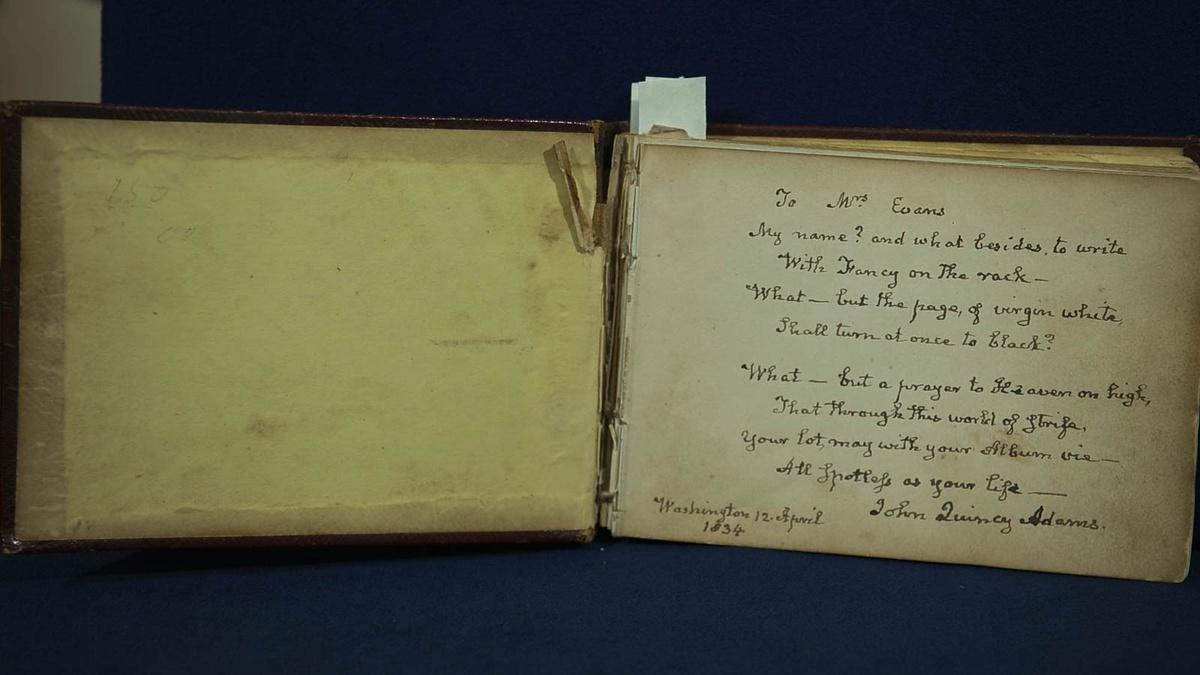 To Mrs Evans
My name? and what besides, to write
With Fancy on the rack —
What — but the page, of virgin white,
Shall turn at once to black?
What — but a prayer to Heaven on high,
That through this world of strife,
Your lot, may with your Album vie —
All spotless as your life —
John Quincy Adams.
Washington 12. April
1834